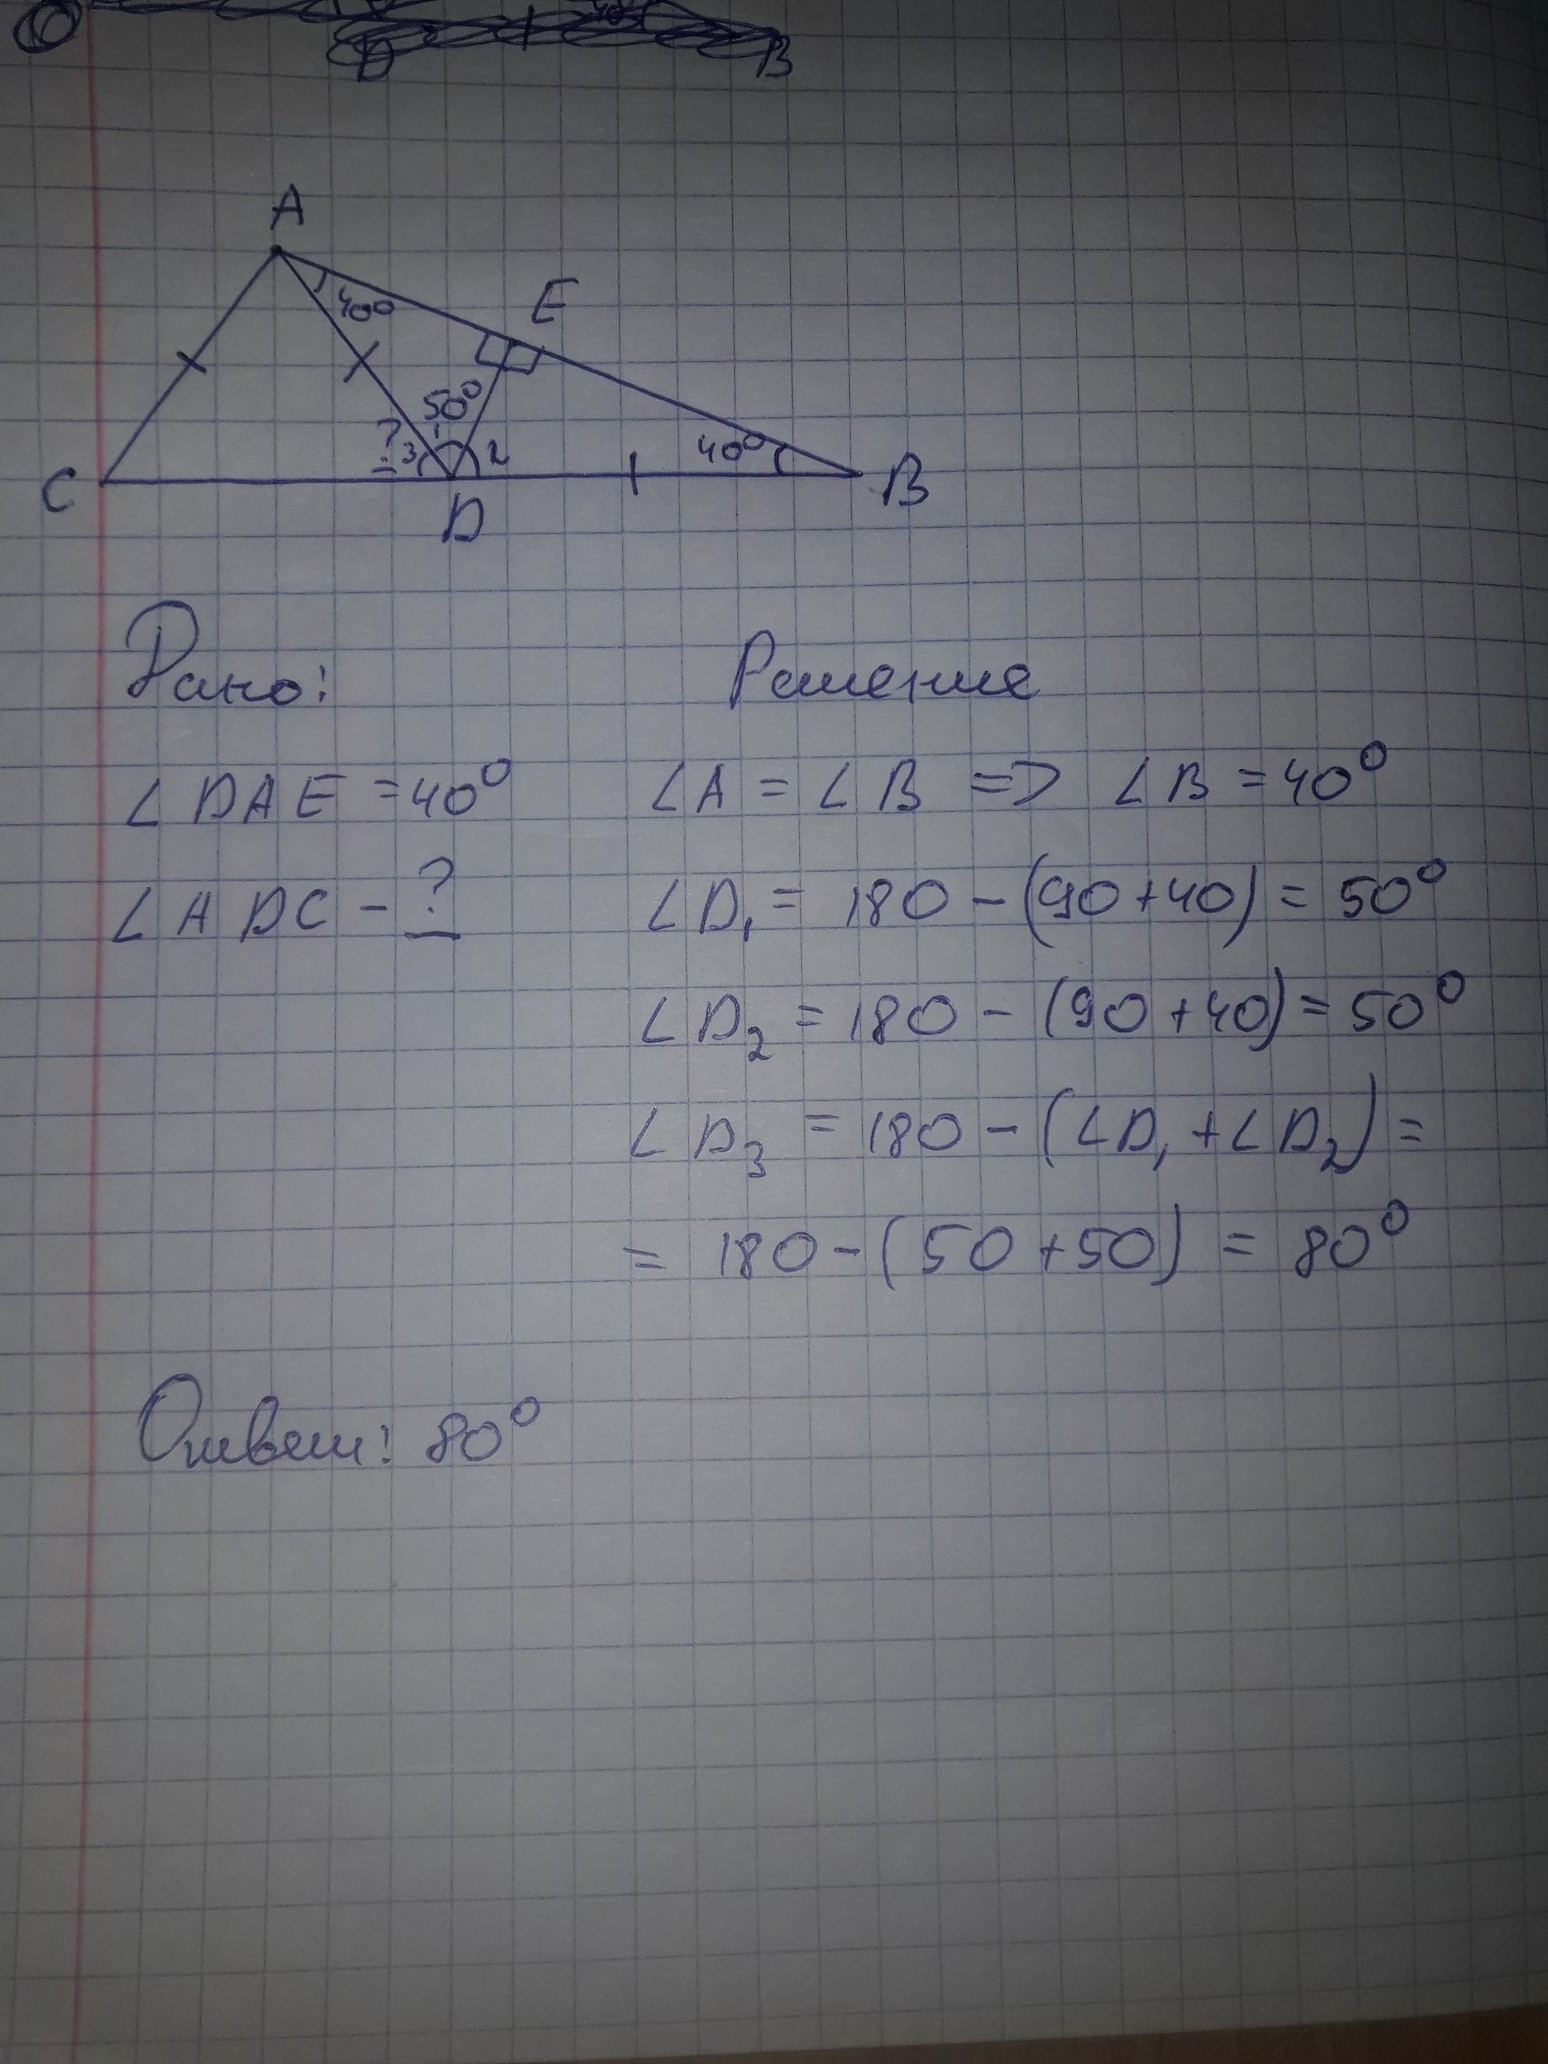 D B
A
E
40°
50°
? 3 1 2
40°
C
D
B
Дано: Решение
∠DAE = 40° ∠A = ∠B => ∠B = 40°
∠ADC - ? ∠D₁ = 180 - (90 + 40) = 50°
∠D₂ = 180 - (90 + 40) = 50°
∠D₃ = 180 - (∠D₁ + ∠D₂) =
= 180 - (50 + 50) = 80°
Ответ: 80°